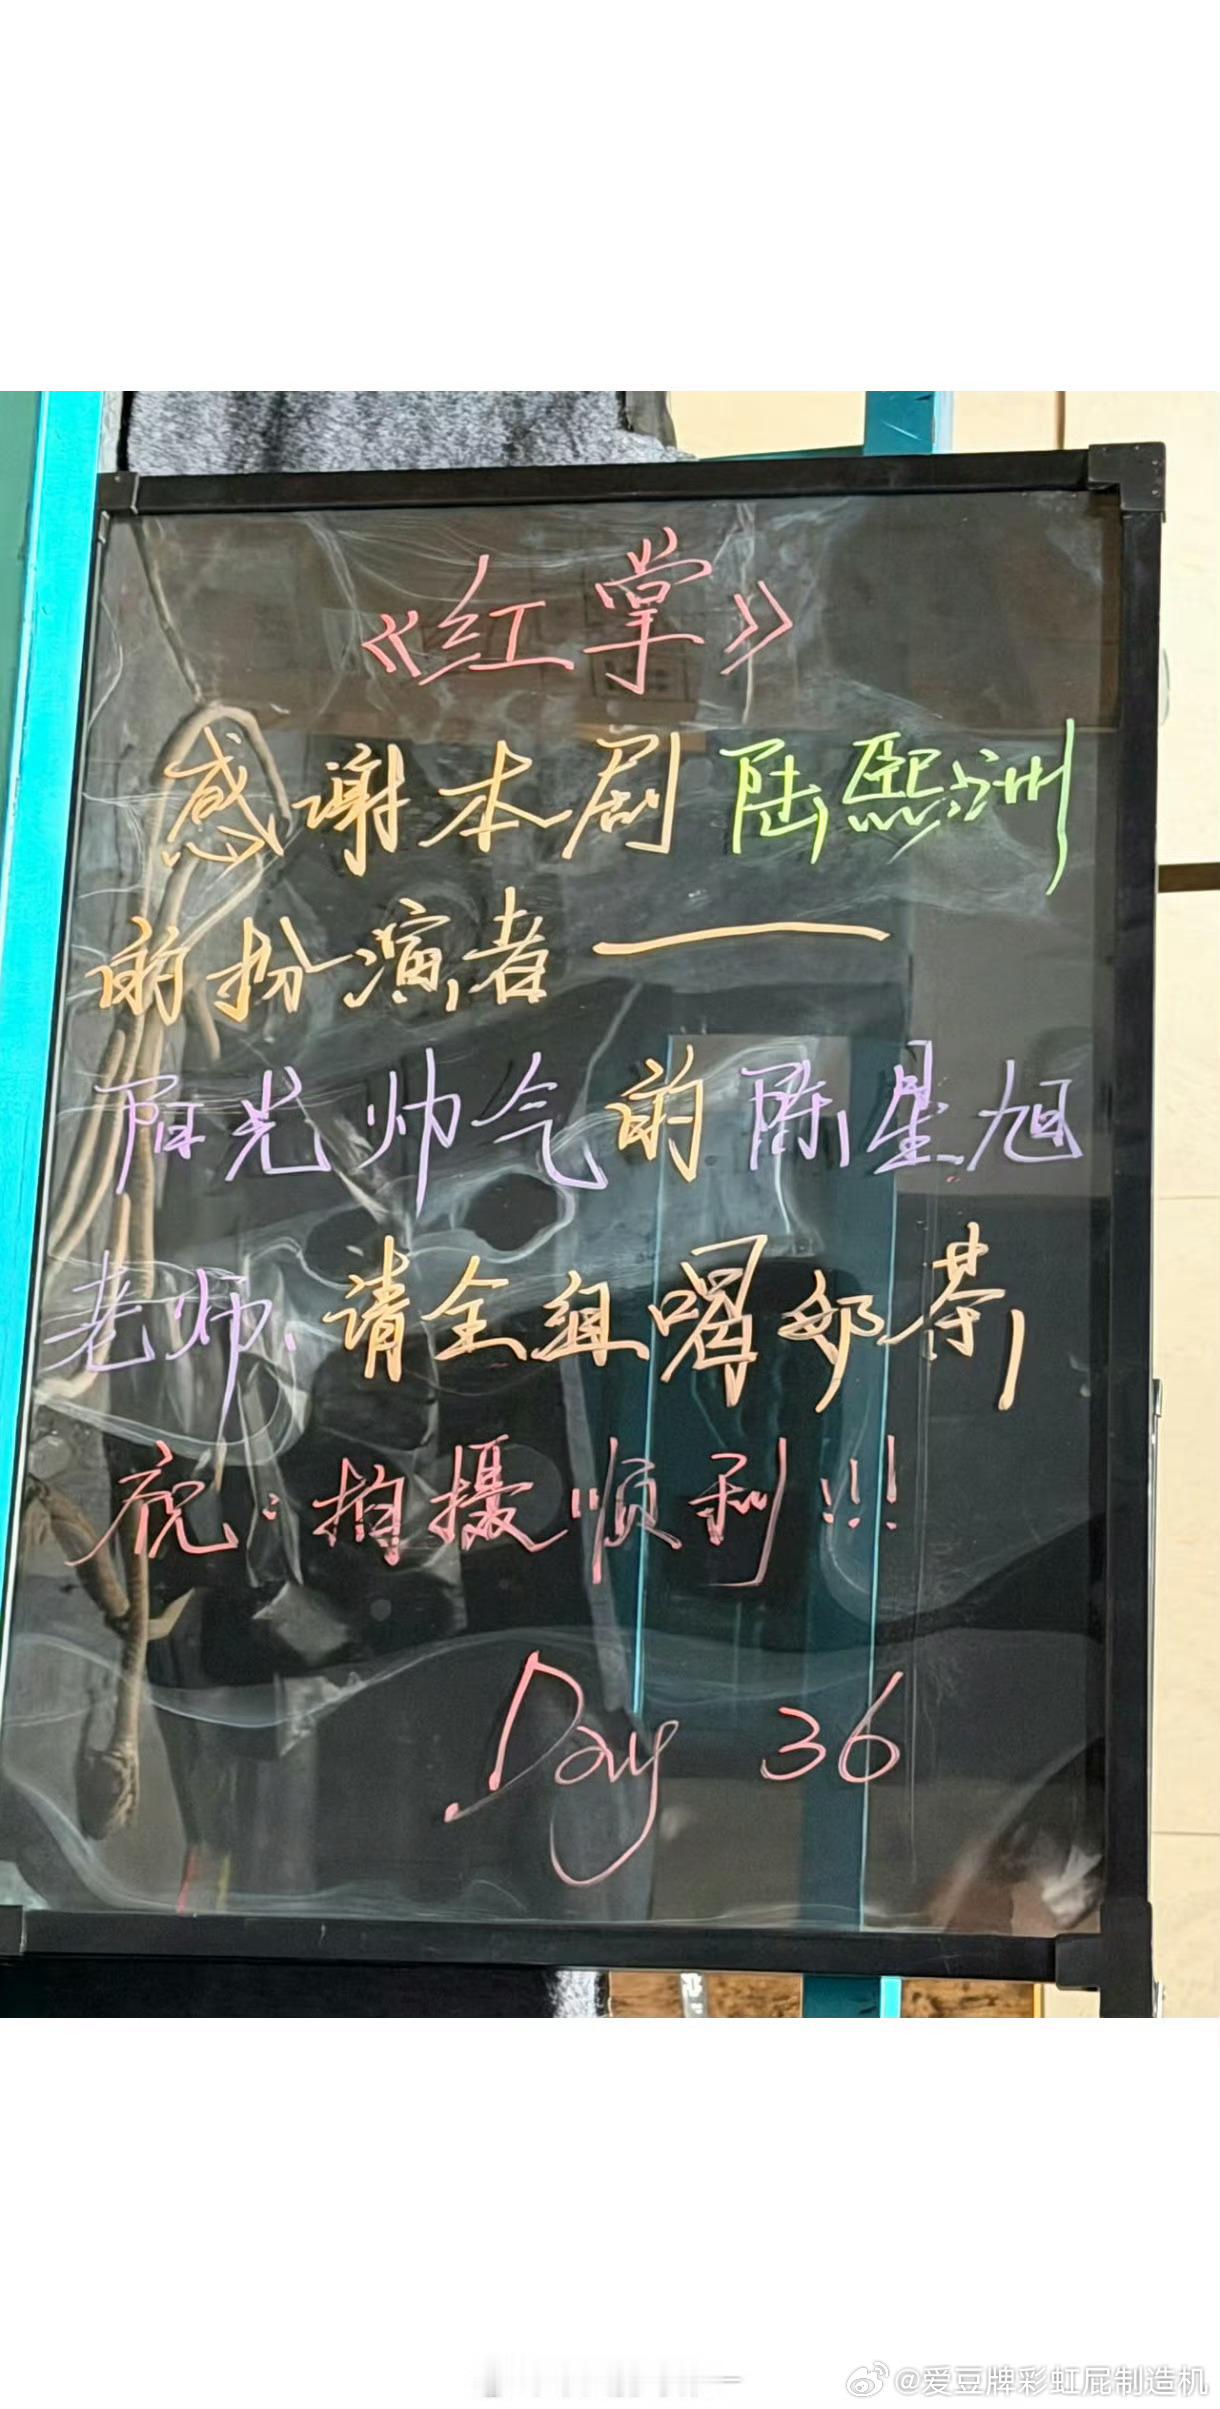 《红掌》
感谢本剧 陆熙洲
的扮演者——
阳光帅气的陈星旭
老师、请全组喝奶茶,
祝:拍摄顺利!!!
Day 36
@爱豆牌彩虹屁制造机